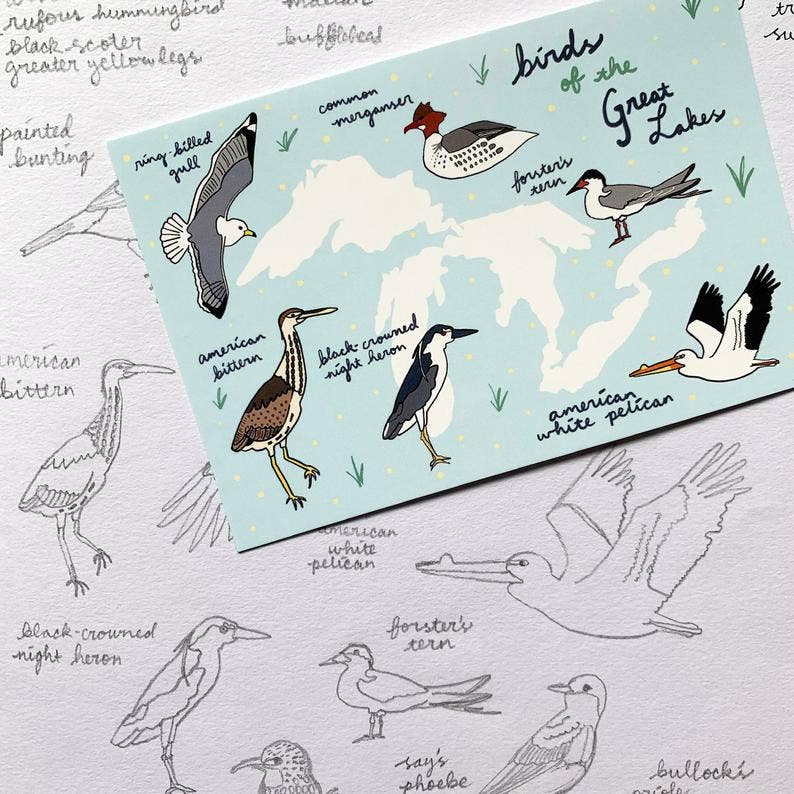 rufous hummingbird
black scoter
greater yellowlegs
bufflehead
painted
bunting
birds
of the
Great
Lakes
common
merganser
ring-billed
gull
forster's
tern
american
bittern
black-crowned
night heron
american
white pelican
american
bittern
american
white
pelican
black-crowned
night heron
forster's
tern
say's
phoebe
bullock's
oriole